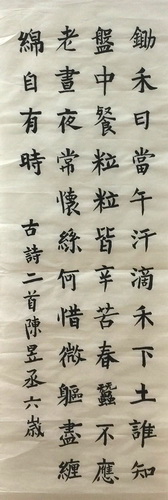 鋤禾日當午汗滴禾下土誰知
盤中餐粒粒皆辛苦春蠶不應
老晝夜常懷絲何惜微軀盡纏
綿自有時
古詩二首陳昱丞六歲